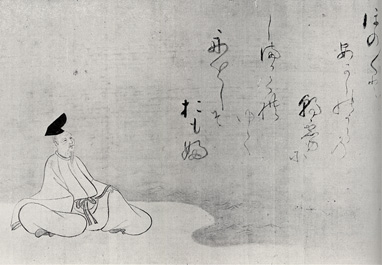 ほの〱と
あかしのうらの
朝霧に
しまかくれ
ゆく
舟をしそ
おも婦